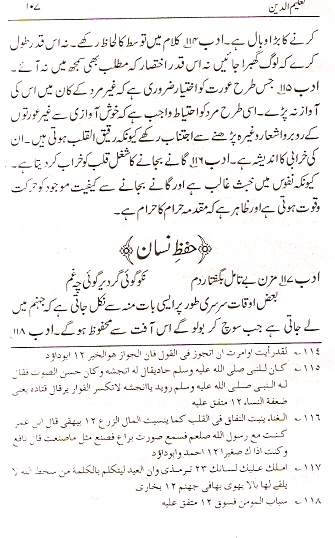 تعلیم الدین ۱۰۷
کرنے کا بڑا وبال ہے۔ ادب ۱۱۴ کلام میں توسط کا لحاظ رکھے۔ نہ اس قدر طول
کرے کہ لوگ گھبرا جائیں نہ اس قدر اختصار کہ مطلب بھی سمجھ میں نہ آئے۔
ادب ۱۱۵ جس طرح عورت کو احتیاط ضروری ہے کہ غیر مرد کے کان میں اس کی
آواز نہ پڑے۔ اسی طرح مرد کو احتیاط واجب ہے کہ خوش آوازی سے غیر عورتوں
کے روبرو اشعار وغیرہ پڑھنے سے اجتناب رکھے کیونکہ رقیق القلب ہوتی ہیں۔ ان
کی خرابی کا اندیشہ ہے۔ ادب ۱۱۶ گانے بجانے کا شغل قلب کو خراب کر دیتا ہے۔
کیونکہ نفوس میں خبث غالب ہے اور گانے بجانے سے کیفیت موجود کو حرکت
و قوت ہوتی ہے اور ظاہر ہے کہ مقدمہ حرام کا حرام ہے۔
حفظِ لسان
ادب ۱۱۷ مزن بے تامل بگفتار دم نکو گوئی گر دیر گوئی چہ غم
بعض اوقات سرسری طور پر ایسی بات منہ سے نکل جاتی ہے کہ جہنم میں
لے جاتی ہے جب سوچ کر بولو گے اس آفت سے محفوظ ہو گے۔ ادب ۱۱۸
۱۱۴۔ لقد رأیت او امرت ان اتجوز فی القول فان الجواز هو الخیر ۱۲ ابوداؤد
۱۱۵۔ کان للنبی صلی الله علیه وسلم حاد یقال له انجشه وکان حسن الصوت فقال
له النبی صلی الله علیه وسلم روید یا انجشه لاتکسر القواریر قال قتاده یعنی
ضعفة النساء ۱۲ متفق علیه
۱۱۶۔ الغناء ینبت النفاق فی القلب کما ینبت الماء الزرع ۱۲ بیهقی قال ابن عمر
کنت مع رسول الله صلعم فسمع صوت یراع فصنع مثل ماصنعت قال نافع
وکنت اذا ک صغیرا ۱۲ احمد وابوداؤد
۱۱۷۔ املک علیک لسانک ۲۳ ترمذی وان العبد لیتکلم بالکلمة من سخط الله لا
یلقی لها بالا یهوی بهافی جهنم ۱۲ بخاری
۱۱۸۔ سباب المومن فسوق ۱۲ متفق علیه